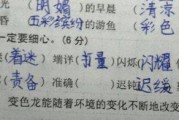 (明媚)的早晨 (清凉
(五彩缤纷)的游鱼 (彩色
一定要细心。(6分)
(着迷) 端详(审量) 闪烁(闪耀
(责备) 准确( ) 迟钝(迟缓
变色龙能随着环境的变化不断地改变